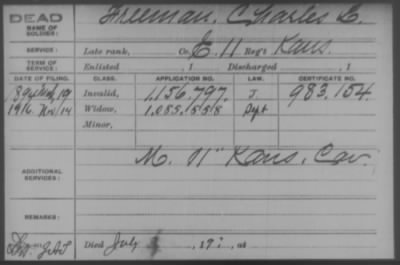 DEAD
NAME OF SOLDIER:
Freeman, Charles E.
SERVICE:
Late rank, Co. E, 11 Reg't Kans.
TERM OF SERVICE:
Enlisted , 1 Discharged , 1
DATE OF FILING. CLASS. APPLICATION NO. LAW. CERTIFICATE NO.
Invalid, 1,156,797. J. 983.154.
1916 Nov 14 Widow, 1,085.558 Sept
Minor,
ADDITIONAL SERVICES:
M. 11" Kans. Cav.
REMARKS:
Died July , 19 , at